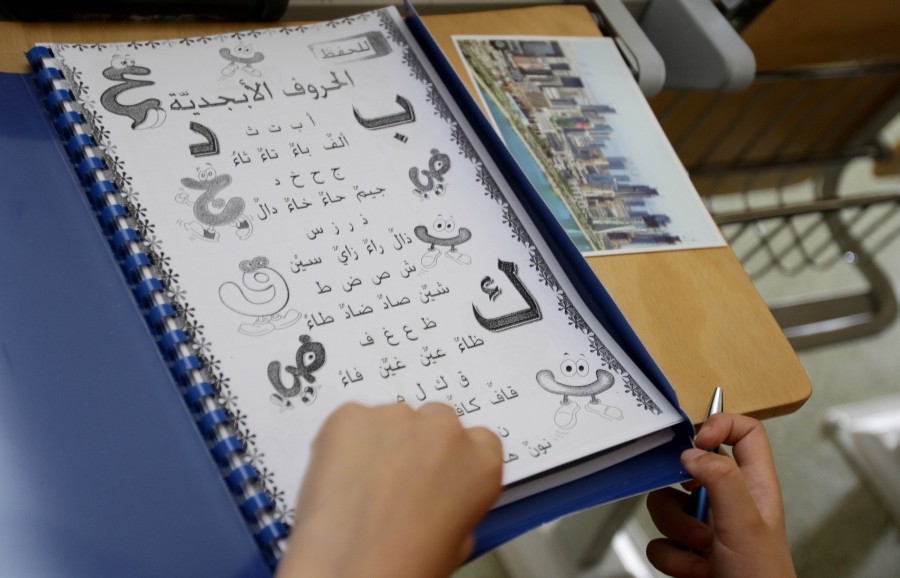 للحفظ
الحروف الأبجديّة
أ ب ت ث
ألفٌ باءٌ تاءٌ ثاءٌ
ج ح خ د
جيمٌ حاءٌ خاءٌ دالٌ
ذ ر ز س
ذالٌ راءٌ زايٌ سينٌ
ش ص ض ط
شينٌ صادٌ ضادٌ طاءٌ
ظ ع غ ف
ظاءٌ عينٌ غينٌ فاءٌ
ق ك ل م
قافٌ كافٌ
ن
نونٌ
ع
د
ب
ج
ض
ق
ك
ض